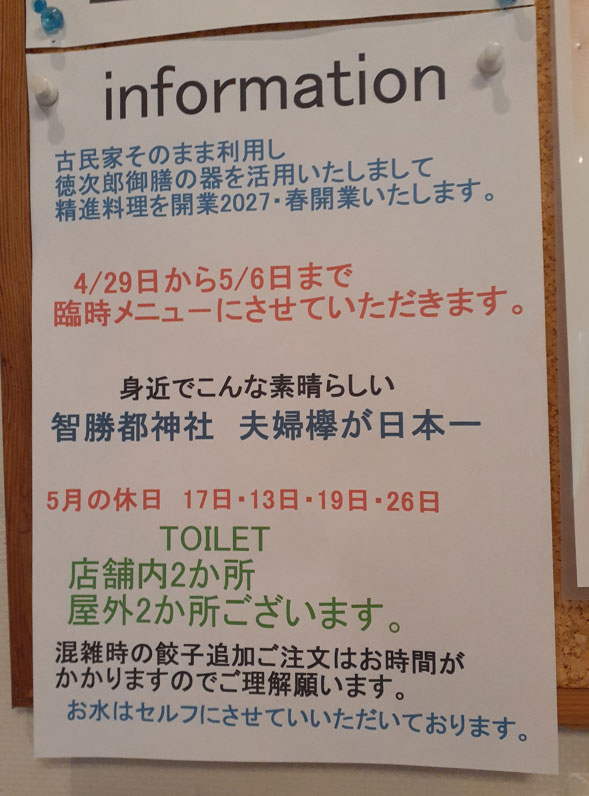 information
古民家そのまま利用し
徳次郎御膳の器を活用いたしまして
精進料理を開業2027・春開業いたします。
4/29日から5/6日まで
臨時メニューにさせていただきます。
身近でこんな素晴らしい
智勝都神社 夫婦欅が日本一
5月の休日 17日・13日・19日・26日
TOILET
店舗内2か所
屋外2か所ございます。
混雑時の餃子追加ご注文はお時間が
かかりますのでご理解願います。
お水はセルフにさせていいただいております。